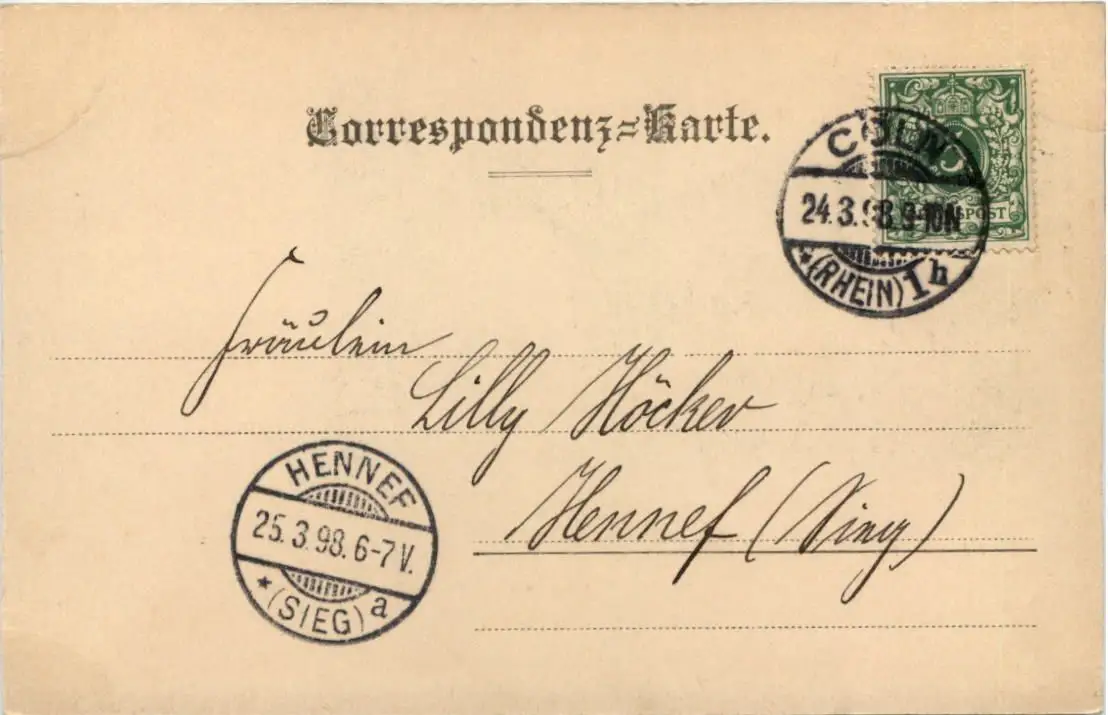 Correspondenz=Karte.
CÖLN
24.3.98.9-10N
*(RHEIN) 1h
REICHSPOST
Fräulein
Lilly Höcker
Hennef (Sieg)
HENNEF
25.3.98.6-7V.
*(SIEG) a